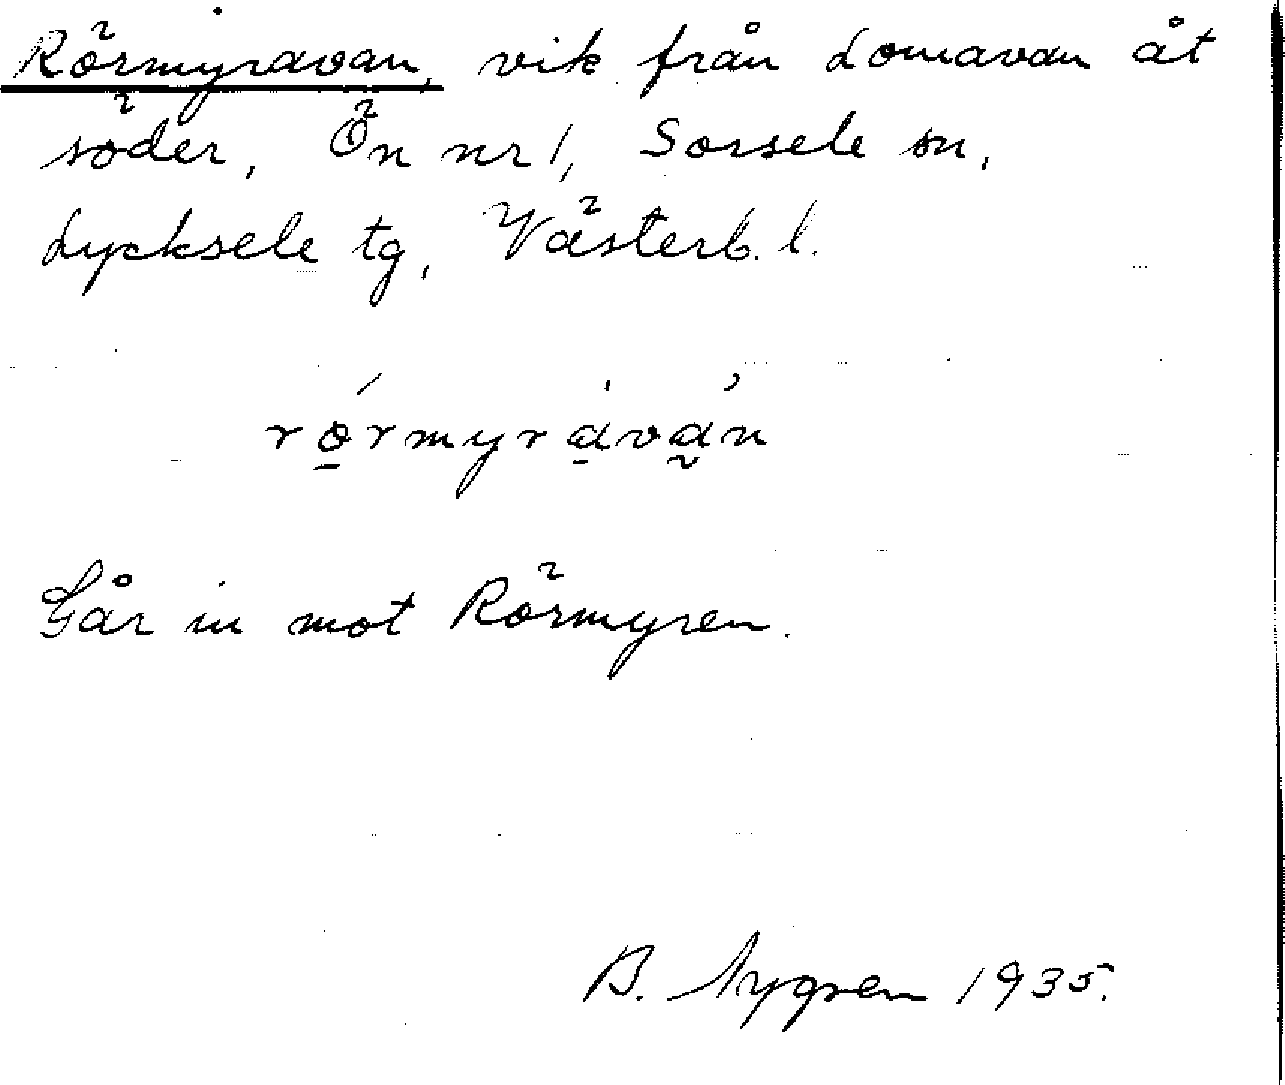 Rörmyravan, vik från Lomavan åt
söder, Ön nr 1, Sorsele sn,
Lycksele tg, Västerb. l.
rørmyravan
Går in mot Rörmyren.
B. Nygren 1935.